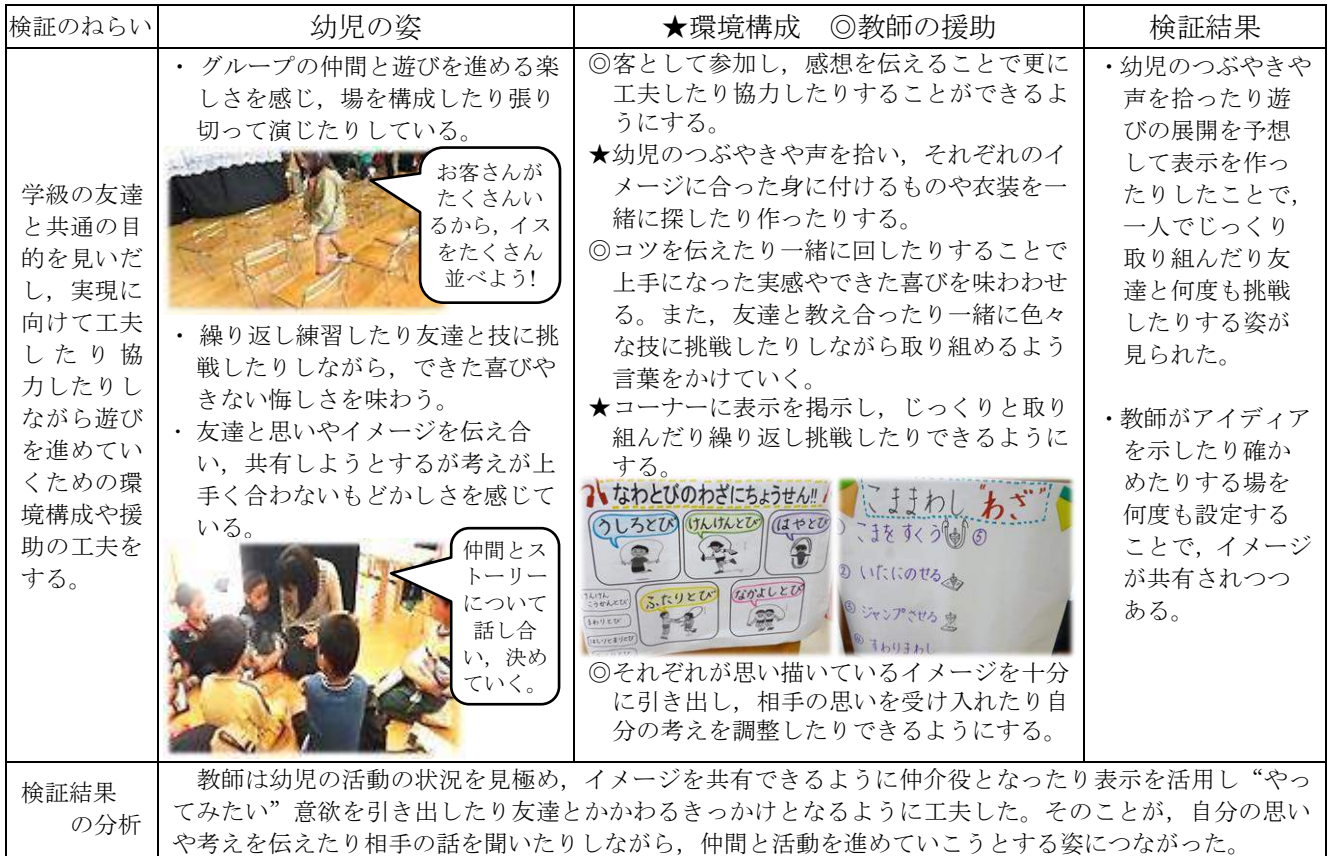 検証のねらい
幼児の姿
★環境構成　◎教師の援助
検証結果
学級の友達
と共通の目
的を見いだ
し，実現に
向けて工夫
したり協
力したりし
ながら遊び
を進めてい
くための環
境構成や援
助の工夫を
する。
・ グループの仲間と遊びを進める楽
しさを感じ，場を構成したり張り
切って演じたりしている。
お客さんが
たくさんい
るから，イス
をたくさん
並べよう！
・ 繰り返し練習したり友達と技に挑
戦したりしながら，できた喜びや
きない悔しさを味わう。
・ 友達と思いやイメージを伝え合
い，共有しようとするが考えが上
手く合わないもどかしさを感じて
いる。
仲間とス
トーリー
について
話し合
い，決め
ていく。
◎客として参加し，感想を伝えることで更に
工夫したり協力したりすることができるよ
うにする。
★幼児のつぶやきや声を拾い，それぞれのイ
メージに合った身に付けるものや衣装を一
緒に探したり作ったりする。
◎コツを伝えたり一緒に回したりすることで
上手になった実感やできた喜びを味わわせ
る。また，友達と教え合ったり一緒に色々
な技に挑戦したりしながら取り組めるよう
言葉をかけていく。
★コーナーに表示を掲示し，じっくりと取り
組んだり繰り返し挑戦したりできるように
する。
なわとびのわざにちょうせん!!
うしろとび
けんけんとび
はやとび
ふたりとび
なかよしとび
こままわし "わざ"
こまをすくう ⑤
② いたにのせる
ジャンプさせる
◎それぞれが思い描いているイメージを十分
に引き出し，相手の思いを受け入れたり自
分の考えを調整したりできるようにする。
・幼児のつぶやきや
声を拾ったり遊
びの展開を予想
して表示を作っ
たりしたことで，
一人でじっくり
取り組んだり友
達と何度も挑戦
したりする姿が
見られた。
・教師がアイディア
を示したり確か
めたりする場を
何度も設定する
ことで，イメージ
が共有されつつ
ある。
検証結果
の分析
教師は幼児の活動の状況を見極め，イメージを共有できるように仲介役となったり表示を活用し“やっ
てみたい”意欲を引き出したり友達とかかわるきっかけとなるように工夫した。そのことが，自分の思い
や考えを伝えたり相手の話を聞いたりしながら，仲間と活動を進めていこうとする姿につながった。